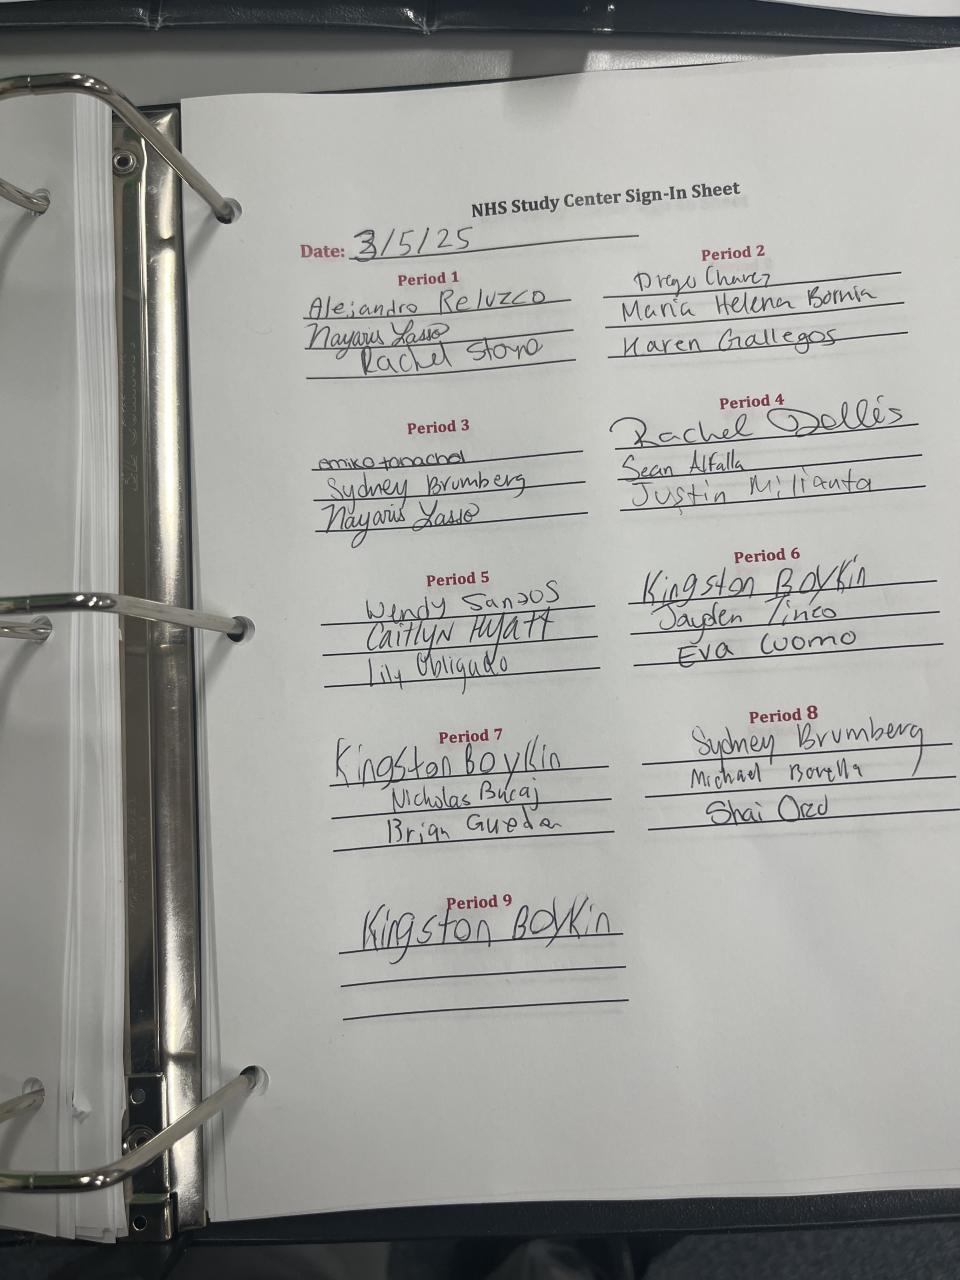 NHS Study Center Sign-In Sheet
Date: 3/5/25
Period 1
Alejandro Reluzco
Nayaris Lasso
Rachel Stoyo
Period 2
Diego Chavez
Maria Helena Bornia
Karen Gallegos
Period 3
emiko tanachol
Sydney Brumberg
Nayaris Lasso
Period 4
Rachel Dellis
Sean Alfalla
Justin Milianta
Period 5
Wendy Santos
Caitlyn Hyatt
Lily Obligado
Period 6
Kingston Boykin
Jayden Tineo
Eva Cuomo
Period 7
Kingston Boykin
Nicholas Bucaj
Brian Guedan
Period 8
Sydney Brumberg
Michael
Shai Ored
Period 9
Kingston Boykin